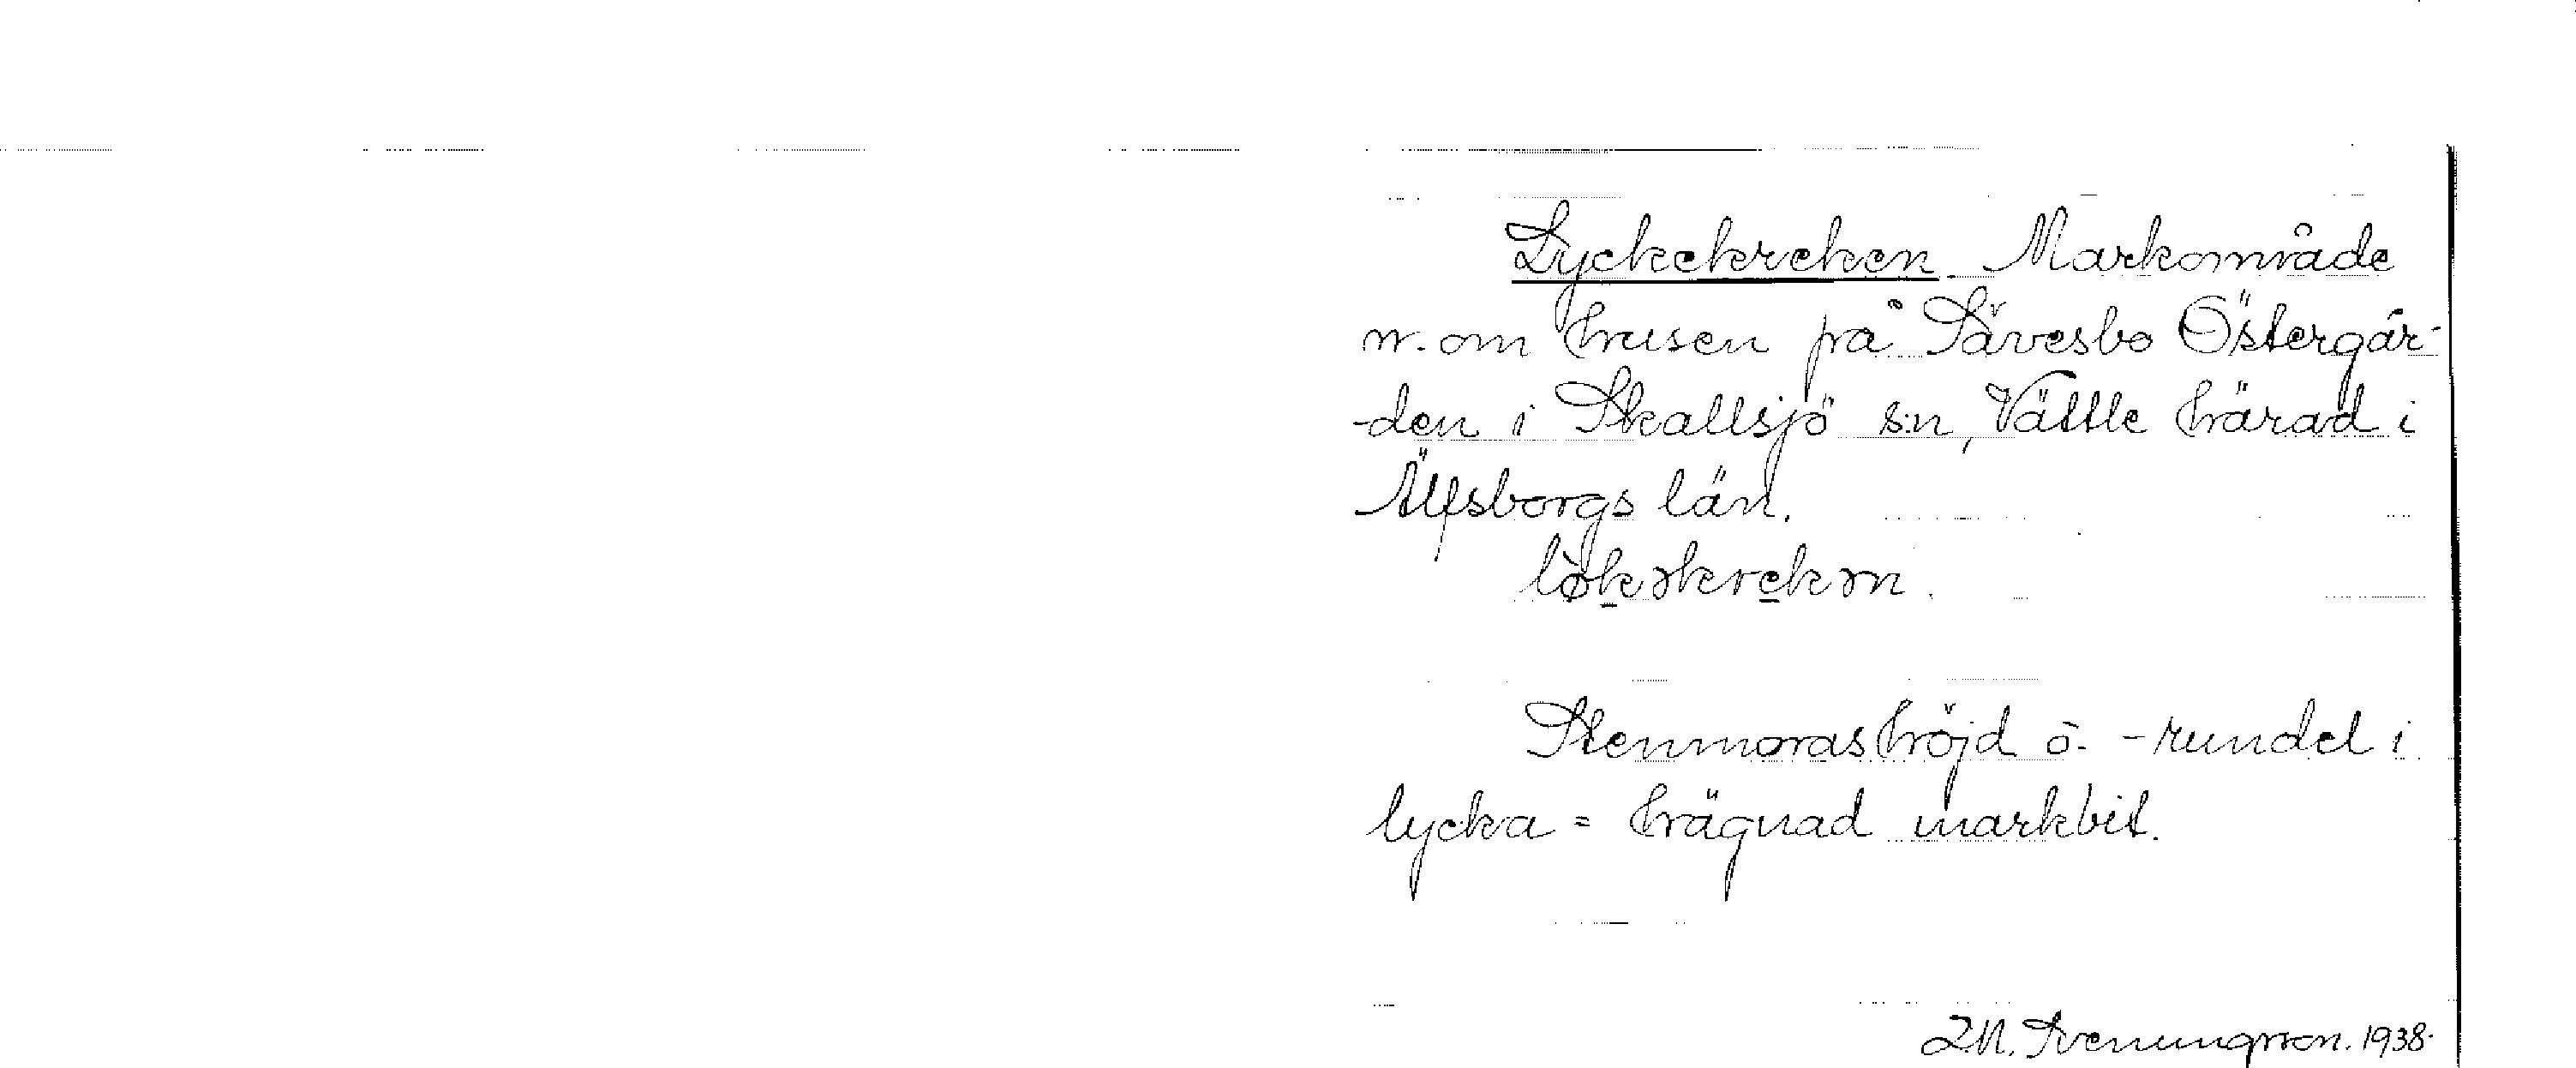 Lyckekreken. Markområde
n. om husen på Sävesbo Östergår-
-den i Skallsjö s:n, Vättle härad i
Älfsborgs län.
Stenmorashöjd o. -rundel i
lycka = hägnad markbit.
Svenungsson. 1938.